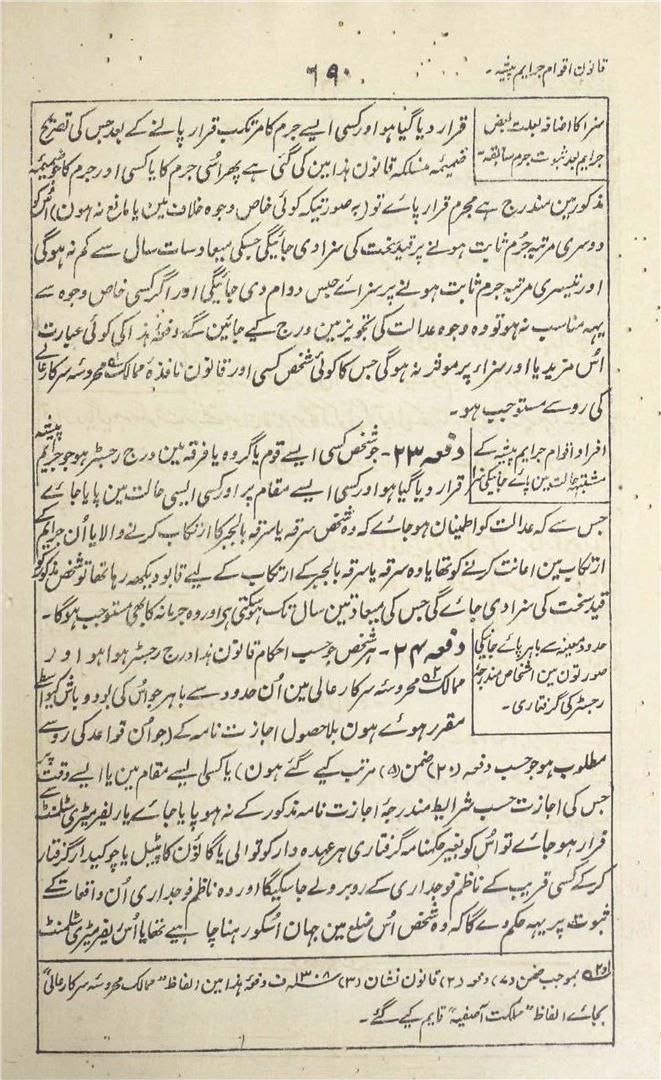 قانون اقوام جرایم پیشہ۔
۶۹۰
سزا کا اضافہ بعلت بعض
جرایم بعد ثبوت جرم سابقہ۔
قرار دیا گیا ہو اور کسی ایسے جرم کا مرتکب قرار پانے کے بعد جس کی تصریح
ضمیمۂ منسلکہ قانون ہذا مین کی گئی ہے پھر اُسی جرم کا یا کسی اور جرم کا جو ضمیمۂ
مذکور مین مندرج ہے مجرم قرار پاے تو (بہ صورتیکہ کوئی خاص وجوہ خلاف مین یا مانع نہ ہون) اُس کو
دوسری مرتبہ جرُم ثابت ہونے پر قید سخت کی سزا دی جائیگی جسکی میعاد سات سال سے کم نہ ہوگی
اور تیسری مرتبہ جرم ثابت ہونے پر سزائے حبس دوام دی جائیگی اور اگر کسی خاص وجوہ سے
یہہ مناسب نہ ہو تو وہ وجوہ عدالت کی تجویز مین درج کیے جائین گے۔ دفعۂ ہذا کی کوئی عبارت
اُس مزید یا اور سزاء پر موثر نہ ہوگی جس کا کوئی شخص کسی اور قانون نافذۂ ممالک محروسہ سرکار عالی
کی رو سے مستوجب ہو۔
افراد اقوام جرایم پیشہ کے
مشتبہ حالت مین پائے جانیکی سزا
دفعہ ۲۳۔ جو شخص کسی ایسے قوم یا گروہ یا فرقہ مین درج رجسٹر ہو جو جرایم پیشہ
قرار دیا گیا ہو اور کسی ایسے مقام پر اور کسی ایسی حالت مین پایا جاے
جس سے کہ عدالت کو اطمینان ہو جاے کہ وہ شخص سرقہ یا سرقہ بالجبر کا ارتکاب کرنے والا یا اُن جرایم کے
ارتکاب مین اعانت کرنے کو تھا یا وہ سرقہ یا سرقہ بالجبر کے ارتکاب کے لیے قابو دیکھہ رہا تھا تو شخص مذکور کو
قید سخت کی سزا دی جاے گی جس کی میعاد تین سال تک ہو سکتی ہی اور وہ جرمانہ کا بھی مستوجب ہوگا۔
حدود معینہ سے باہر پائے جانیکی
صورتون مین اشخاص مندرجۂ
رجسٹر کی گرفتاری۔
دفعہ ۲۴۔ ہر شخص جو حسب احکام قانون ہذا درج رجسٹر ہوا ہو اور
ممالک ۵۲ محروسہ سرکار عالی مین اُن حدود سے باہر جو اُس کی بود و باش کیواسطے
مقرر ہوے ہون بلا حصول اجازت نامہ کے (جو اُن قواعد کی رو سے
مطلوب ہو جو حسب دفعہ (۲۰) ضمن (۵) مرتب کیے گئے ہون) یا کسی ایسے مقام مین یا ایسے وقت پر
جس کی اجازت حسب شرایط مندرجۂ اجازت نامہ مذکور کے نہ ہو پایا جاے یا رلفرمیٹری سٹلمنٹ سے
فرار ہو جاے تو اُس کو بغیر حکمنامہ گرفتاری ہر عہدہ دار کوتوالی یا گاؤن کا پٹیل یا چوکیدار گرفتار
کر کے کسی قریب کے ناظم فوجداری کے روبرو لے جا سکیگا اور وہ ناظم فوجداری اُن واقعات کے
ثبوت پر یہہ حکم دے گا کہ وہ شخص اُس ضلع مین جہان اُسکو رہنا چاہیے تھا یا اُس ریفرمیٹری سٹلمنٹ
۵۱ و ۵۲ بموجب ضمن (۷) دفعہ (۲) قانون نشان (۳) ۱۳۰۸ سنہ ف دفعۂ ہذا مین الفاظ "ممالک محروسہ سرکار عالی"
بجاے الفاظ "مملکت آصفیہ" قایم کیے گئے۔